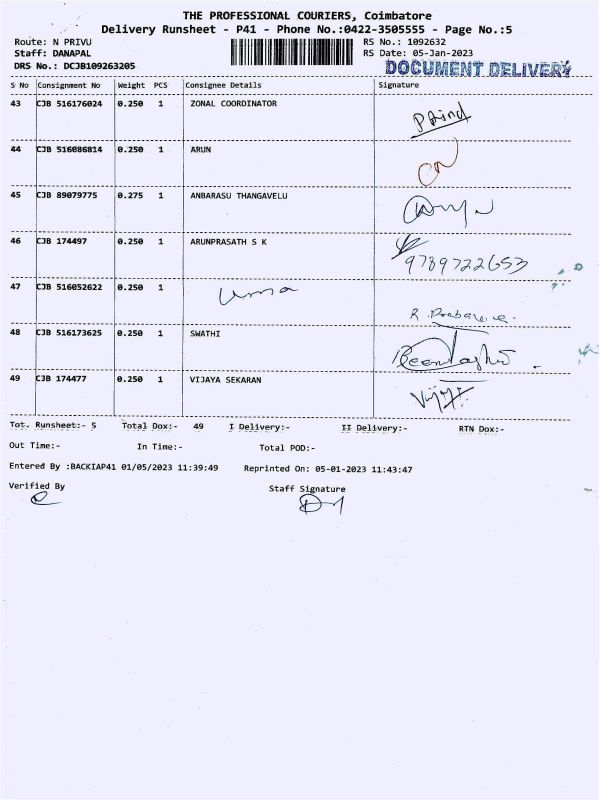 THE PROFESSIONAL COURIERS, Coimbatore
Delivery Runsheet - P41 - Phone No.:0422-3505555 - Page No.:5
Route: N PRIVU RS No.: 1092632
Staff: DANAPAL RS Date: 05-Jan-2023
DRS No.: DCJB109263205 DOCUMENT DELIVERY
S No Consignment No Weight PCS Consignee Details Signature
43 CJB 516176024 0.250 1 ZONAL COORDINATOR
44 CJB 516086814 0.250 1 ARUN
45 CJB 89079775 0.275 1 ANBARASU THANGAVELU
46 CJB 174497 0.250 1 ARUNPRASATH S K
9789722653
47 CJB 516052622 0.250 1 Uma
48 CJB 516173625 0.250 1 SWATHI
49 CJB 174477 0.250 1 VIJAYA SEKARAN
Tot. Runsheet:- 5 Total Dox:- 49 I Delivery:- II Delivery:- RTN Dox:-
Out Time:- In Time:- Total POD:-
Entered By :BACKIAP41 01/05/2023 11:39:49 Reprinted On: 05-01-2023 11:43:47
Verified By Staff Signature